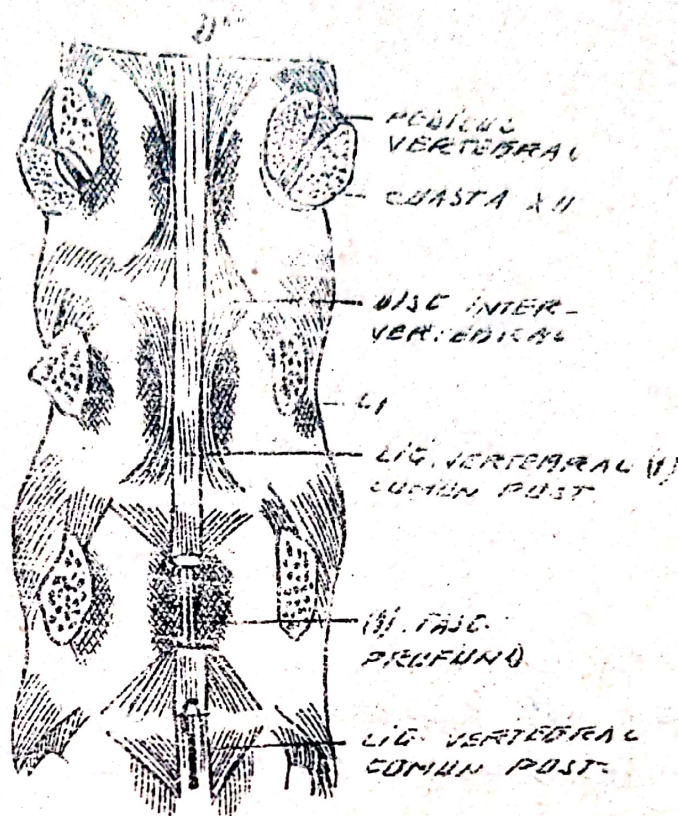 PEDICUL
VERTEBRAL
COASTA XII
DISC INTER-
VERTEBRAL
L1
LIG. VERTEBRAL (1)
COMUN POST.
(1). FASC.
PROFUND
LIG. VERTEBRAL
COMUN POST.